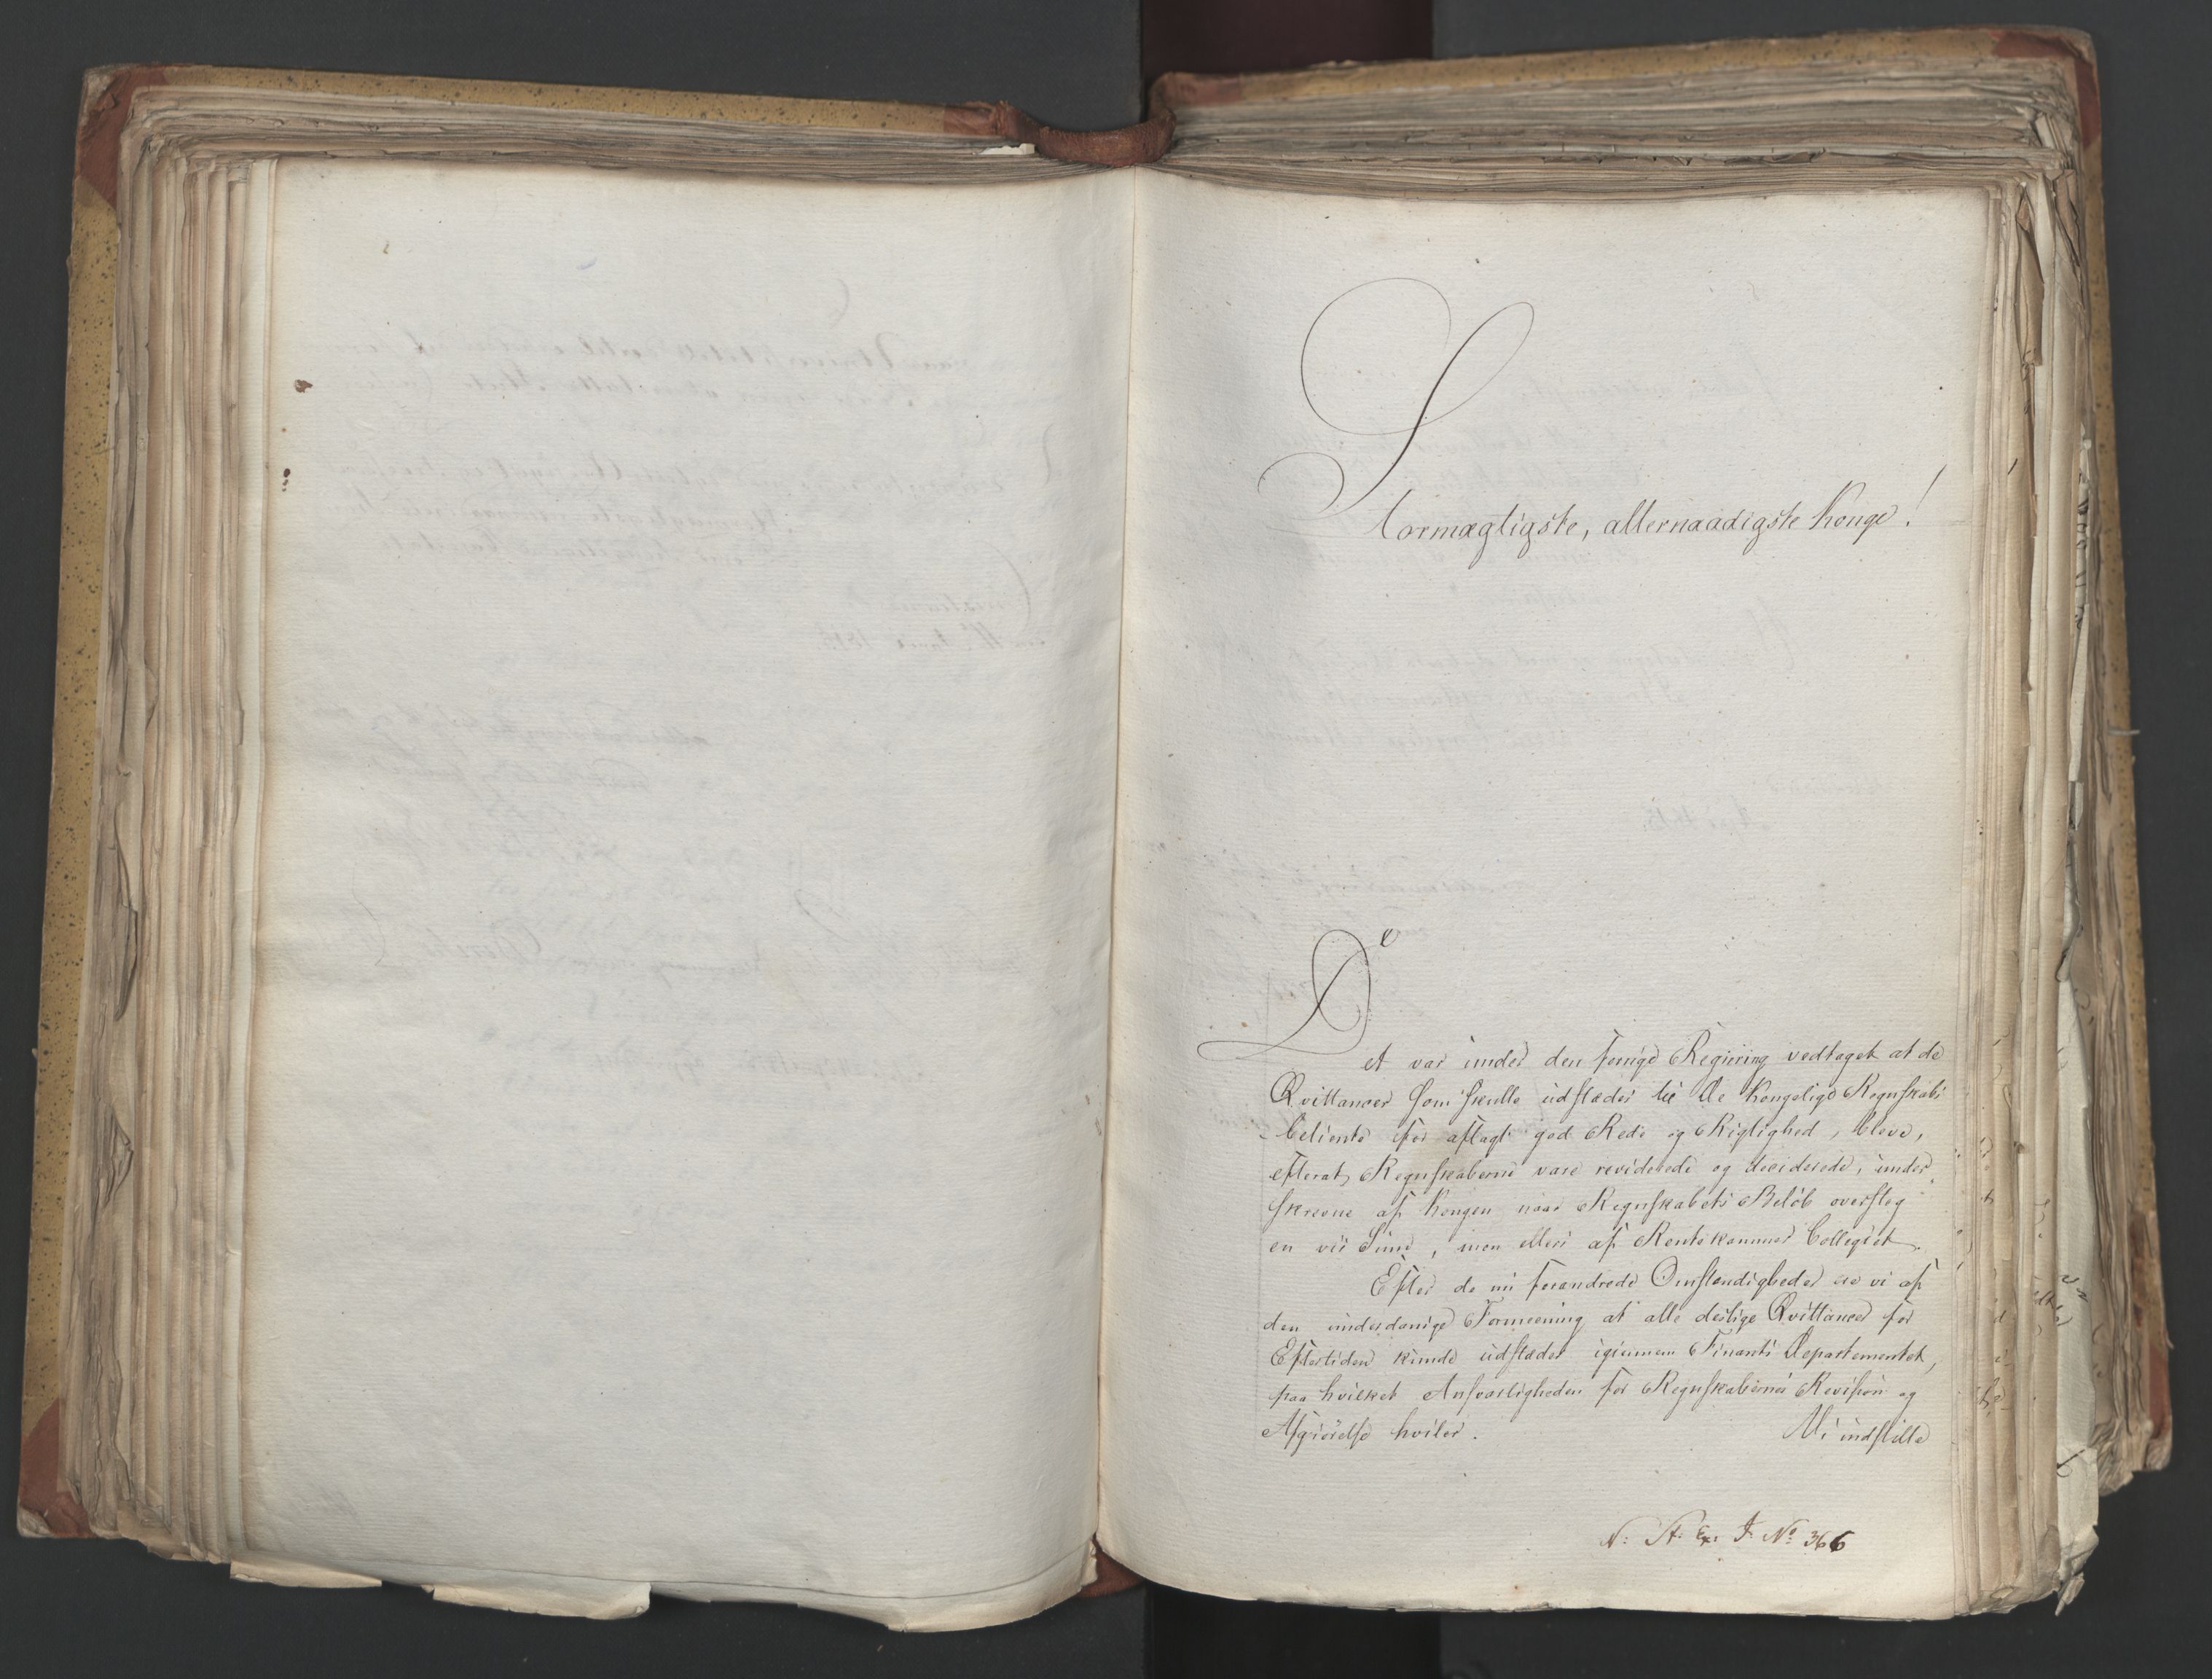 Stormægtigste, allernaadigste Konge!
Det var under den forrige Regiering vedtaget at de
Qvittancer som skulle udstædes til de Kongelige Regnskabs
-betiente for aflagt god Rede og Rigtighed, bleve,
efterat Regnskaberne vare reviderede og deciderede, under
skrevne af Kongen naar Regnskabets Beløb oversteg
en vis Sum, men ellers af Rentekammer Collegiet.
Efter de nu forandrede Omstændigheder ere vi af
den underdanige Formeening at alle deslige Qvittancer for
Eftertiden kunde udstædes igiennem Finants Departementet,
paa hvilket Ansvarligheden for Regnskabernes Revision og
Afgiørelse hviler. Vi indstille
N: St: Ex: J: No 366